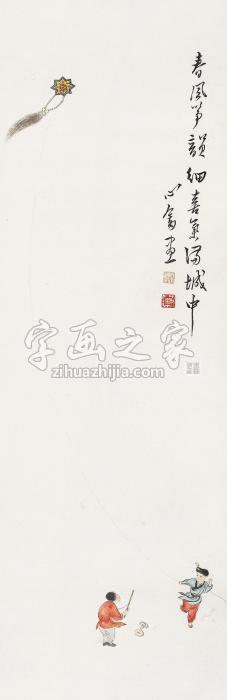 春风筝韻细喜氣满城中
心畬画
字画之家
zihuazhijia.com